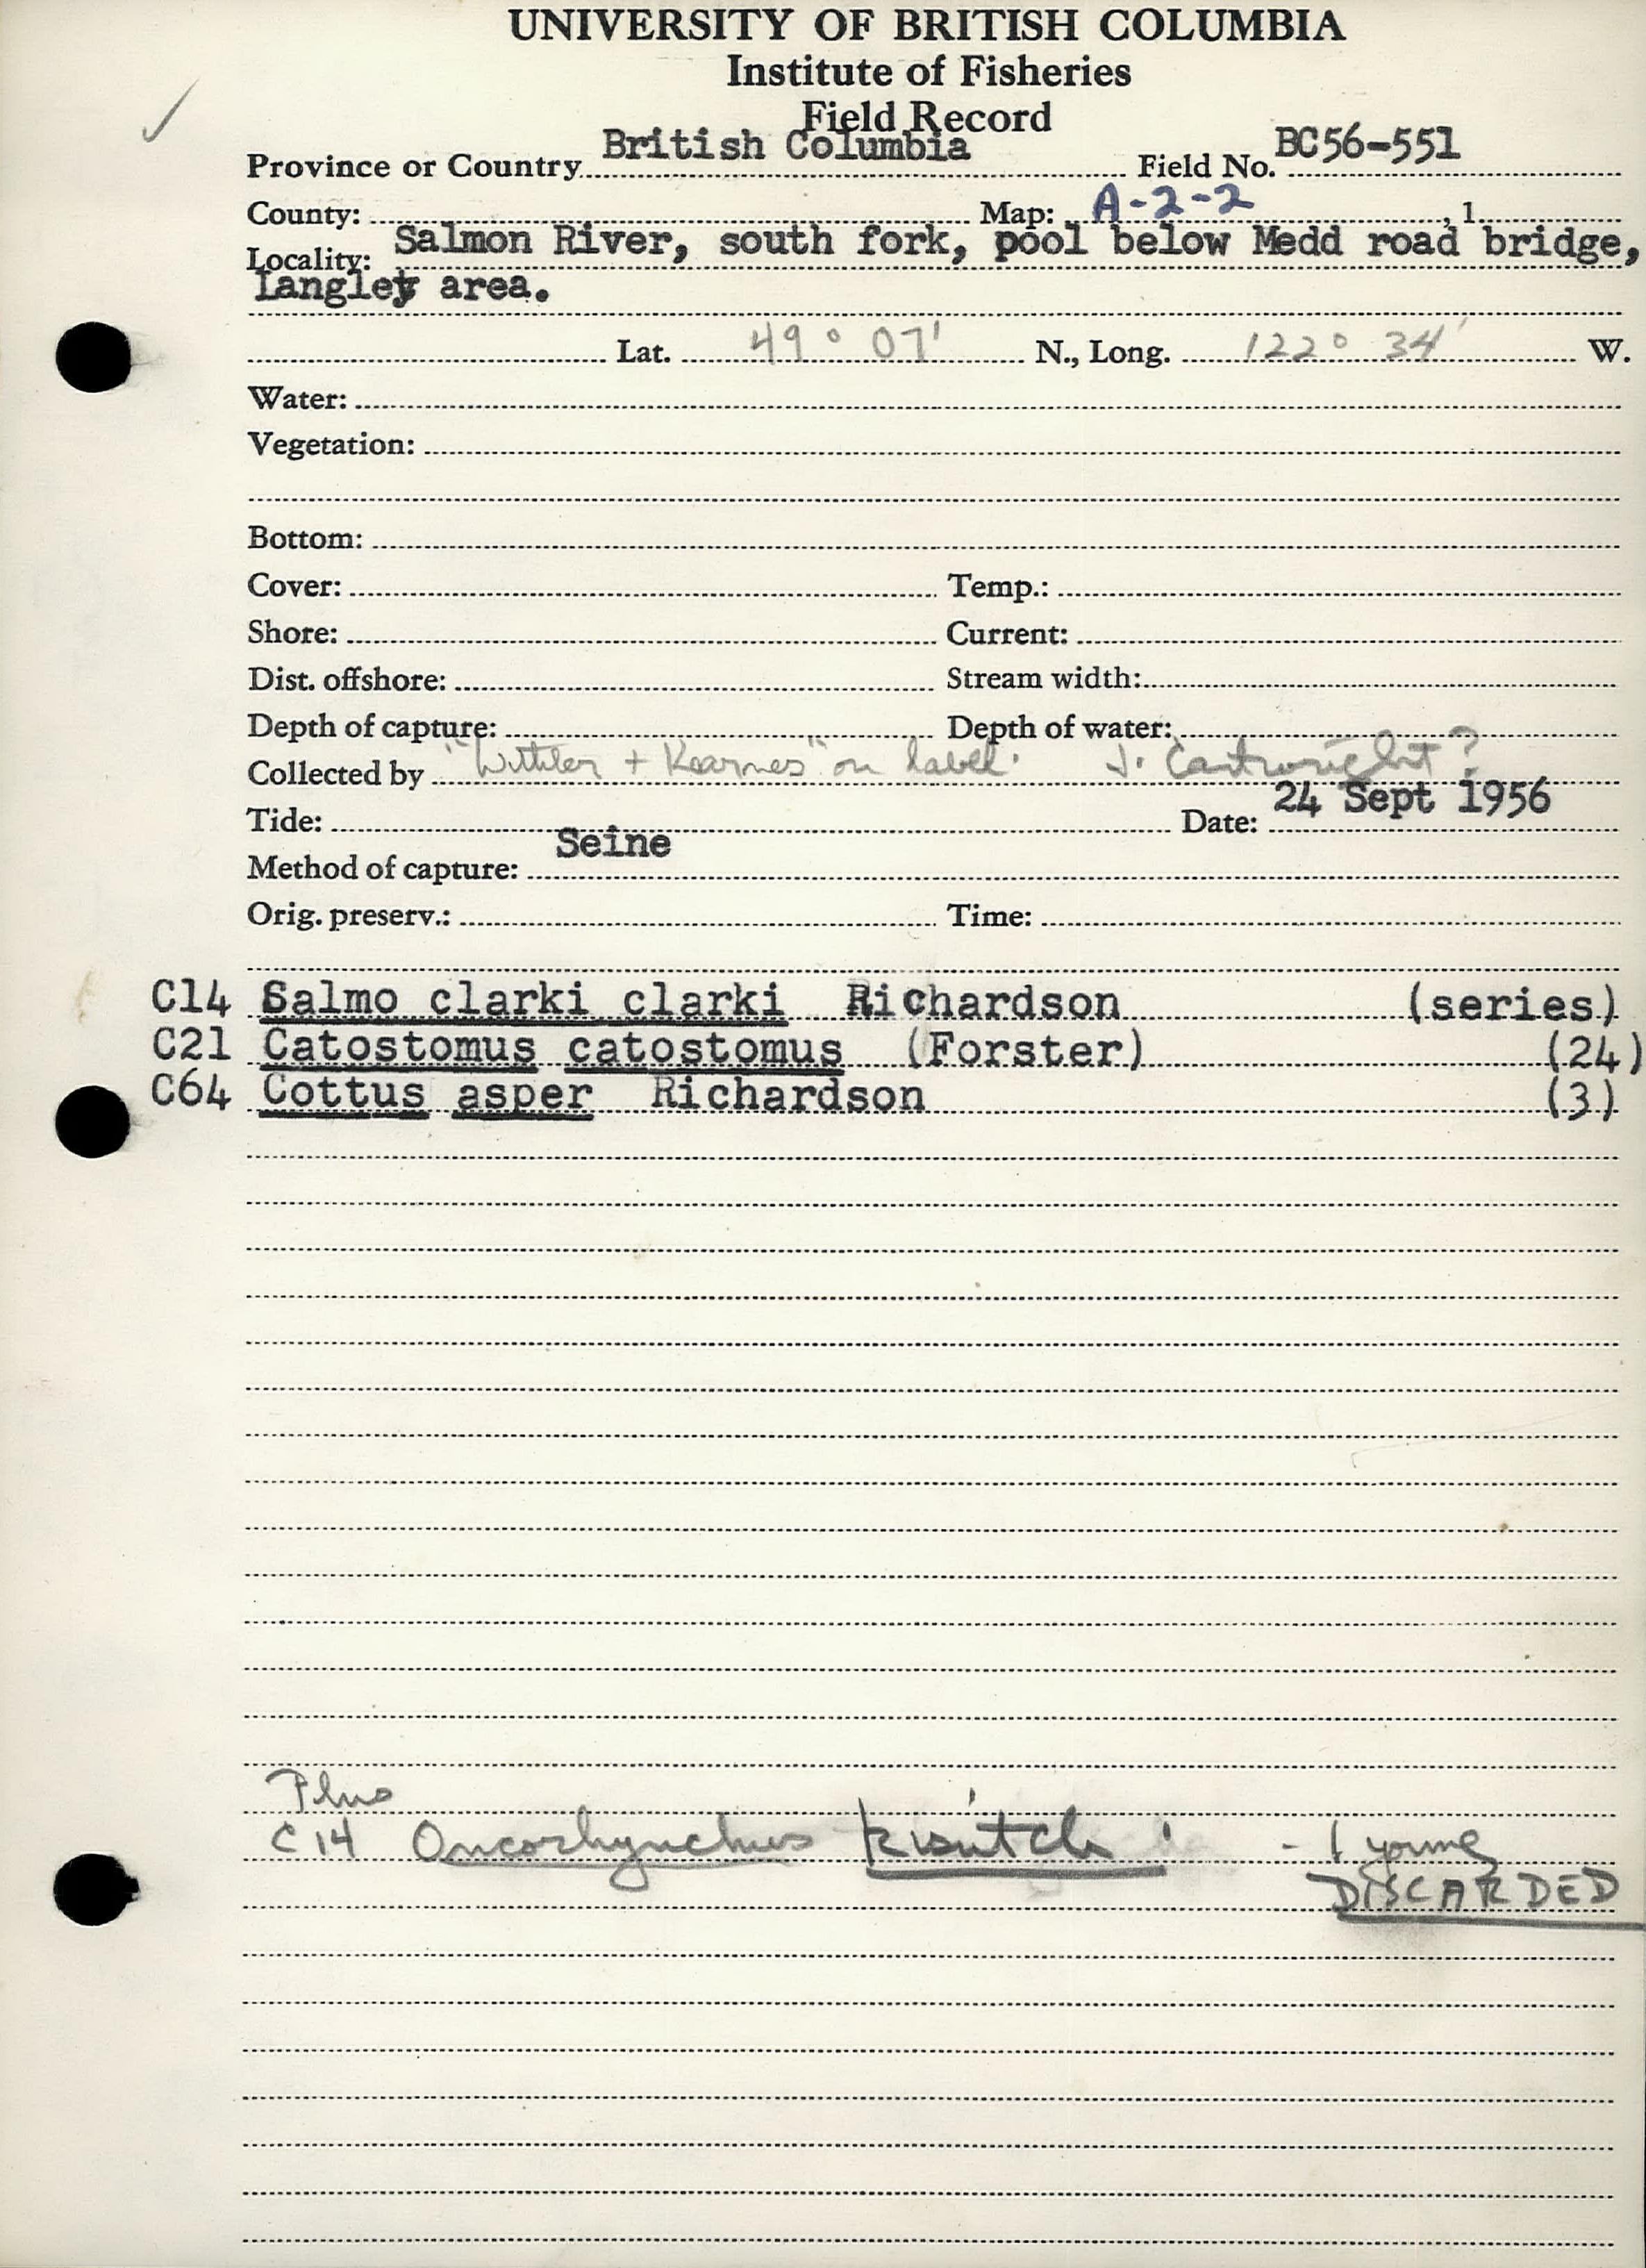 UNIVERSITY OF BRITISH COLUMBIA
Institute of Fisheries
Field Record
Province or Country British Columbia Field No. BC56-551
County: Map: A-2-2 , 1
Locality: Salmon River, south fork, pool below Medd road bridge,
Langley area.
Lat. 49° 07' N., Long. 122° 34' W.
Water:
Vegetation:
Bottom:
Cover: Temp.:
Shore: Current:
Dist. offshore: Stream width:
Depth of capture: Depth of water:
Collected by "Withler + Kearnes" on label. J. Cartwright?
Tide: Date: 24 Sept 1956
Method of capture: Seine
Orig. preserv.: Time:
C14 Salmo clarki clarki Richardson (series)
C21 Catostomus catostomus (Forster) (24)
C64 Cottus asper Richardson (3)
Plus
C14 Oncorhynchus kisutch - 1 young
DISCARDED